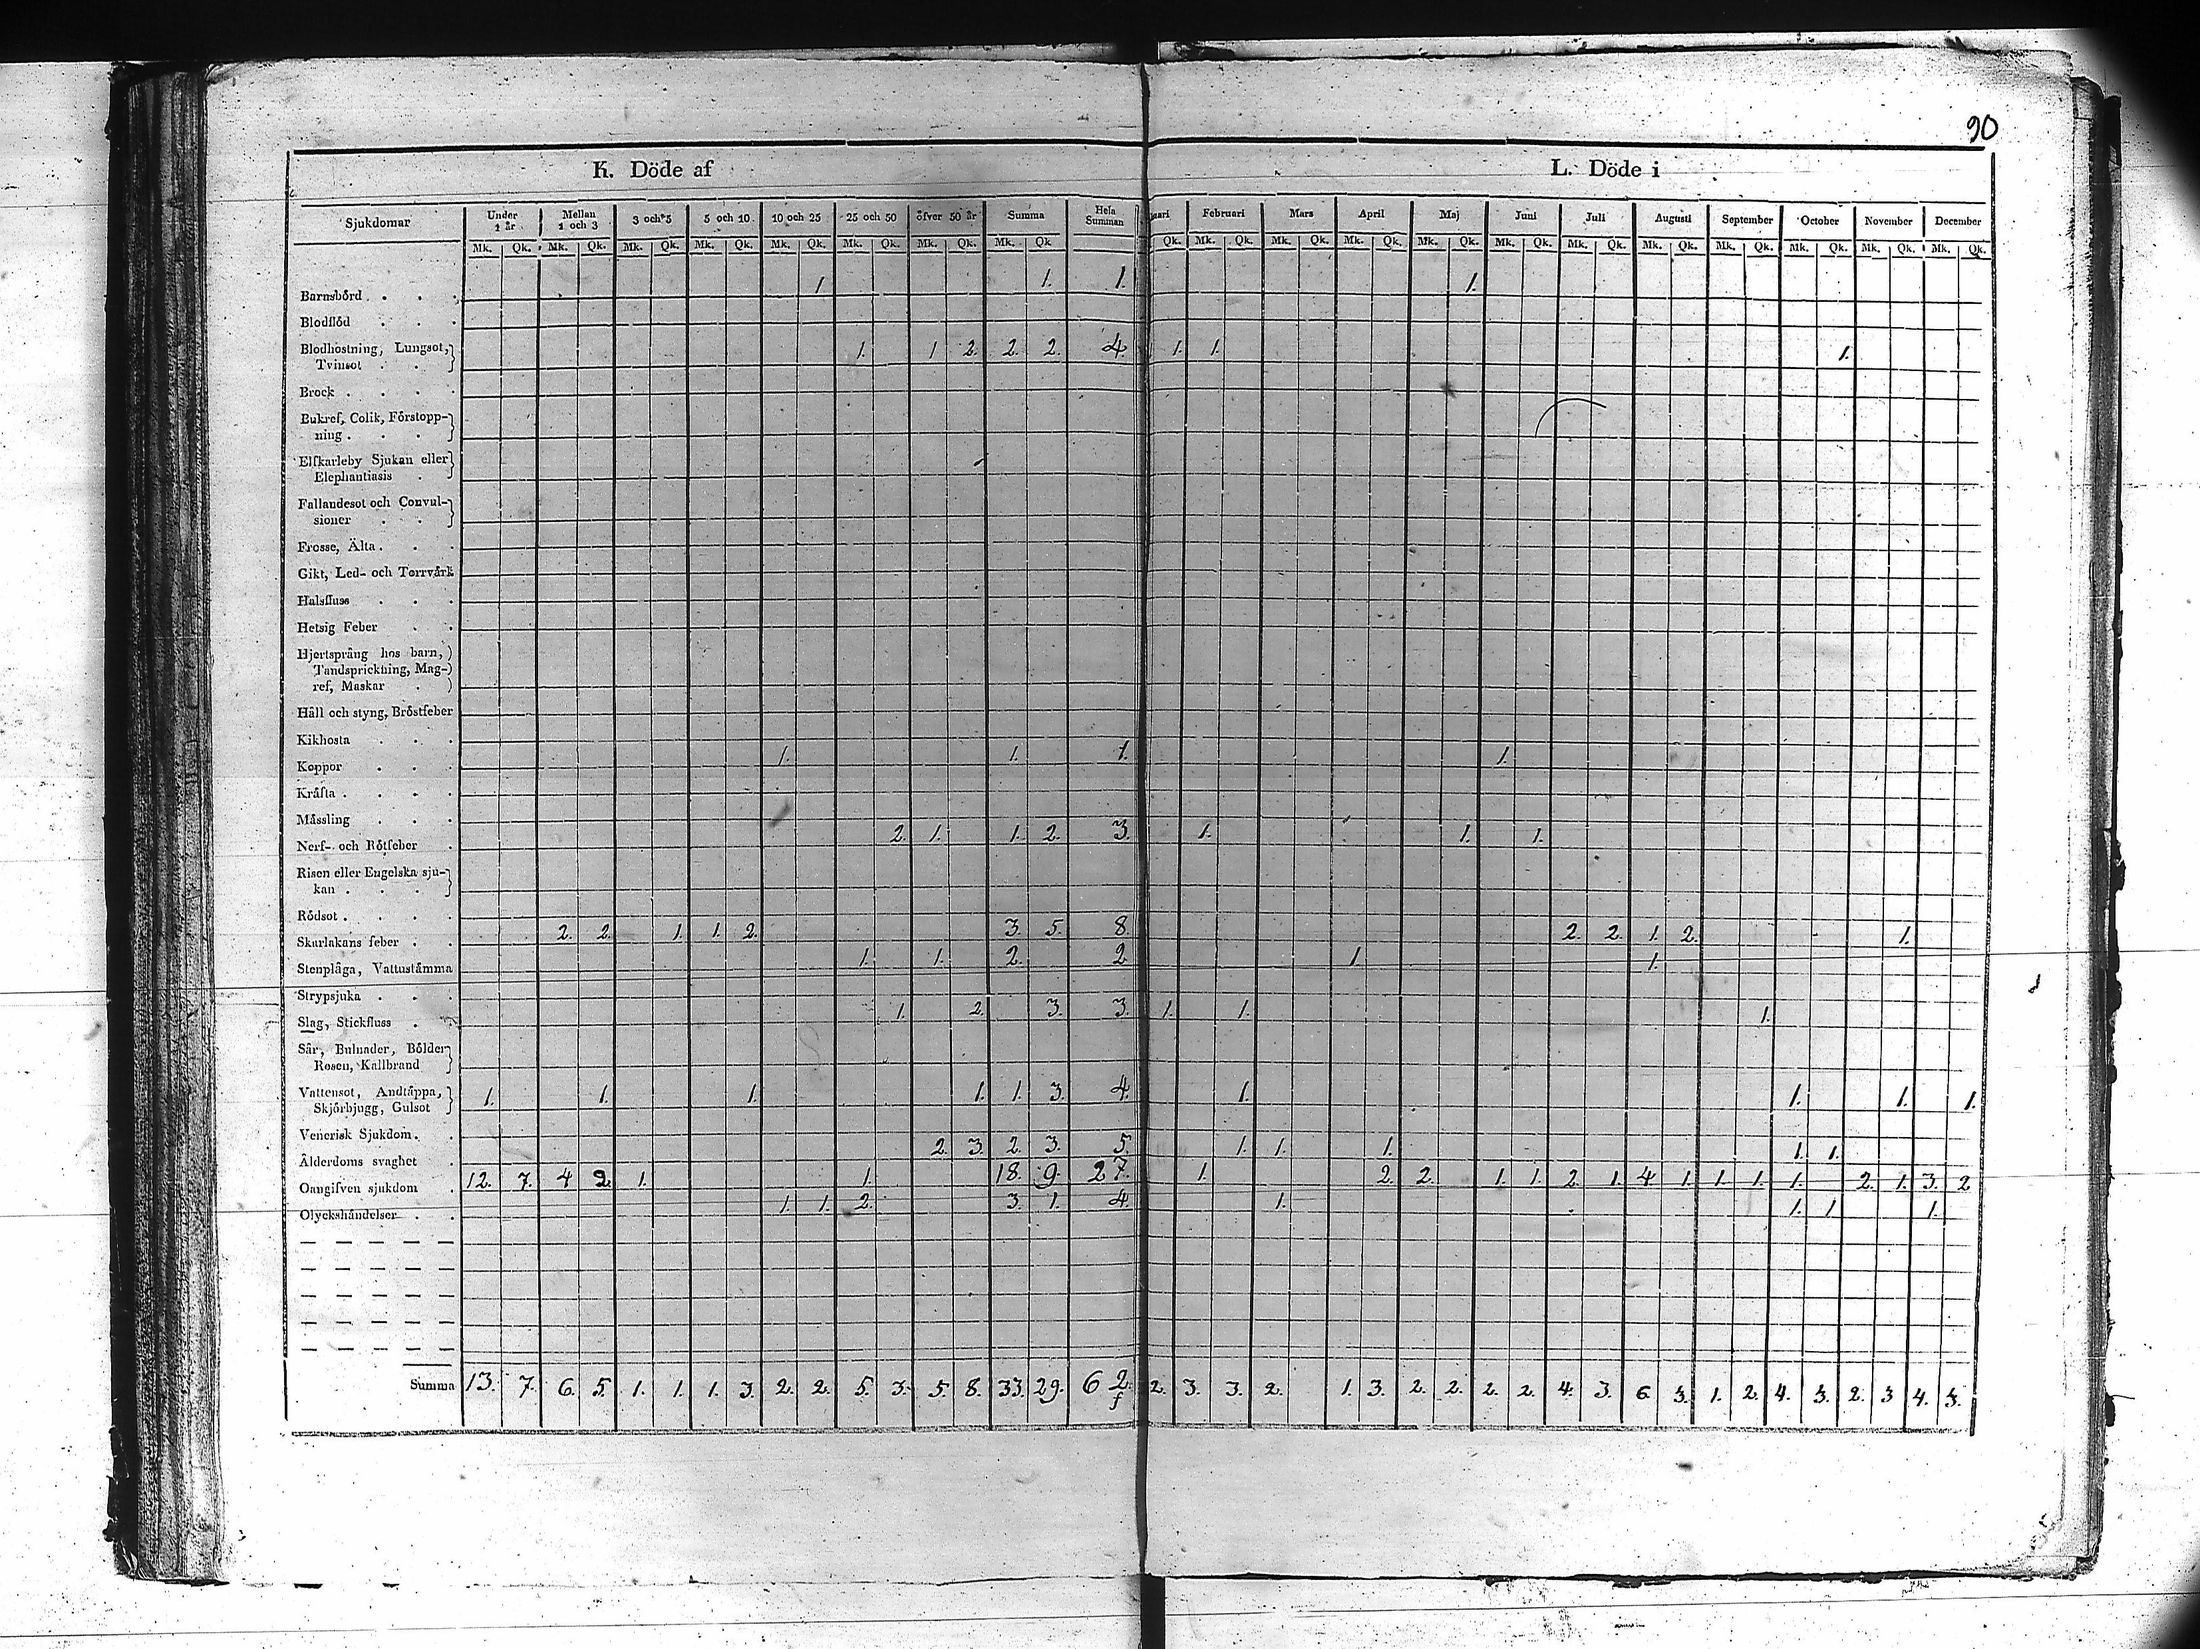 90
K. Döde af
L. Döde i
Sjukdomar Under 1 år Mellan 1 och 3 3 och 5 5 och 10 10 och 25 25 och 50 öfver 50 år Summa Hela Summan uari Februari Mars April Maj Juni Juli Augusti September October November December
Mk. Qk. Mk. Qk. Mk. Qk. Mk. Qk. Mk. Qk. Mk. Qk. Mk. Qk. Mk. Qk. Qk. Mk. Qk. Mk. Qk. Mk. Qk. Mk. Qk. Mk. Qk. Mk. Qk. Mk. Qk. Mk. Qk. Mk. Qk. Mk. Qk. Mk. Qk.
Barnsbörd . . . 1 1. 1. 1.
Blodflöd . . .
Blodhostning, Lungsot,
Tvinsot . . . 1. 1 2. 2. 2. 4. 1. 1. 1.
Brock . . . .
Bukref, Colik, Förstopp-
ning . . . .
Elfkarleby Sjukan eller
Elephantiasis .
Fallandesot och Convul-
sioner . . .
Frosse, Älta . . .
Gikt, Led- och Torrvärk
Halsfluss . . .
Hetsig Feber . .
Hjertsprång hos barn,
Tandsprickning, Mag-
ref, Maskar .
Håll och styng, Bröstfeber
Kikhosta . . .
Koppor . . . 1. 1. 1. 1.
Kräfta . . . .
Mässling . . .
Nerf- och Rötfeber . 2. 1. 1. 2. 3. 1. 1. 1.
Risen eller Engelska sju-
kan . . . .
Rödsot . . . .
Skarlakans feber . . 2. 2. 1. 1. 2. 3. 5. 8. 2. 2. 1. 2. 1.
Stenplåga, Vattustämma 1. 1. 2. 2 1. 1.
Strypsjuka . . .
Slag, Stickfluss . . 1. 2. 3. 3. 1. 1. 1.
Sår, Bulnader, Bölder
Rosen, Kallbrand
Vattensot, Andtäppa,
Skjörbjugg, Gulsot 1. 1. 1. 1. 1. 3. 4. 1. 1. 1. 1.
Venerisk Sjukdom . .
Ålderdoms svaghet . 2. 3. 2. 3. 5. 1. 1. 1. 1. 1.
Oangifven sjukdom . 12. 7. 4 2. 1. 1. 18. 9. 27. 1. 2. 2. 1. 1. 2. 1. 4 1. 1. 1. 1. 2. 1. 3. 2
Olyckshändelser . . 1. 1. 2. 3. 1. 4. 1. 1. 1. 1.
Summa 13. 7. 6. 5. 1. 1. 1. 3. 2. 2. 5. 3. 5. 8. 33. 29. 62. 2. 3. 3. 2. 1. 3. 2. 2. 2. 2. 4. 3. 6 3. 1. 2. 4. 3. 2. 3 4. 3.